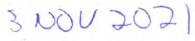 3 NOV 2021